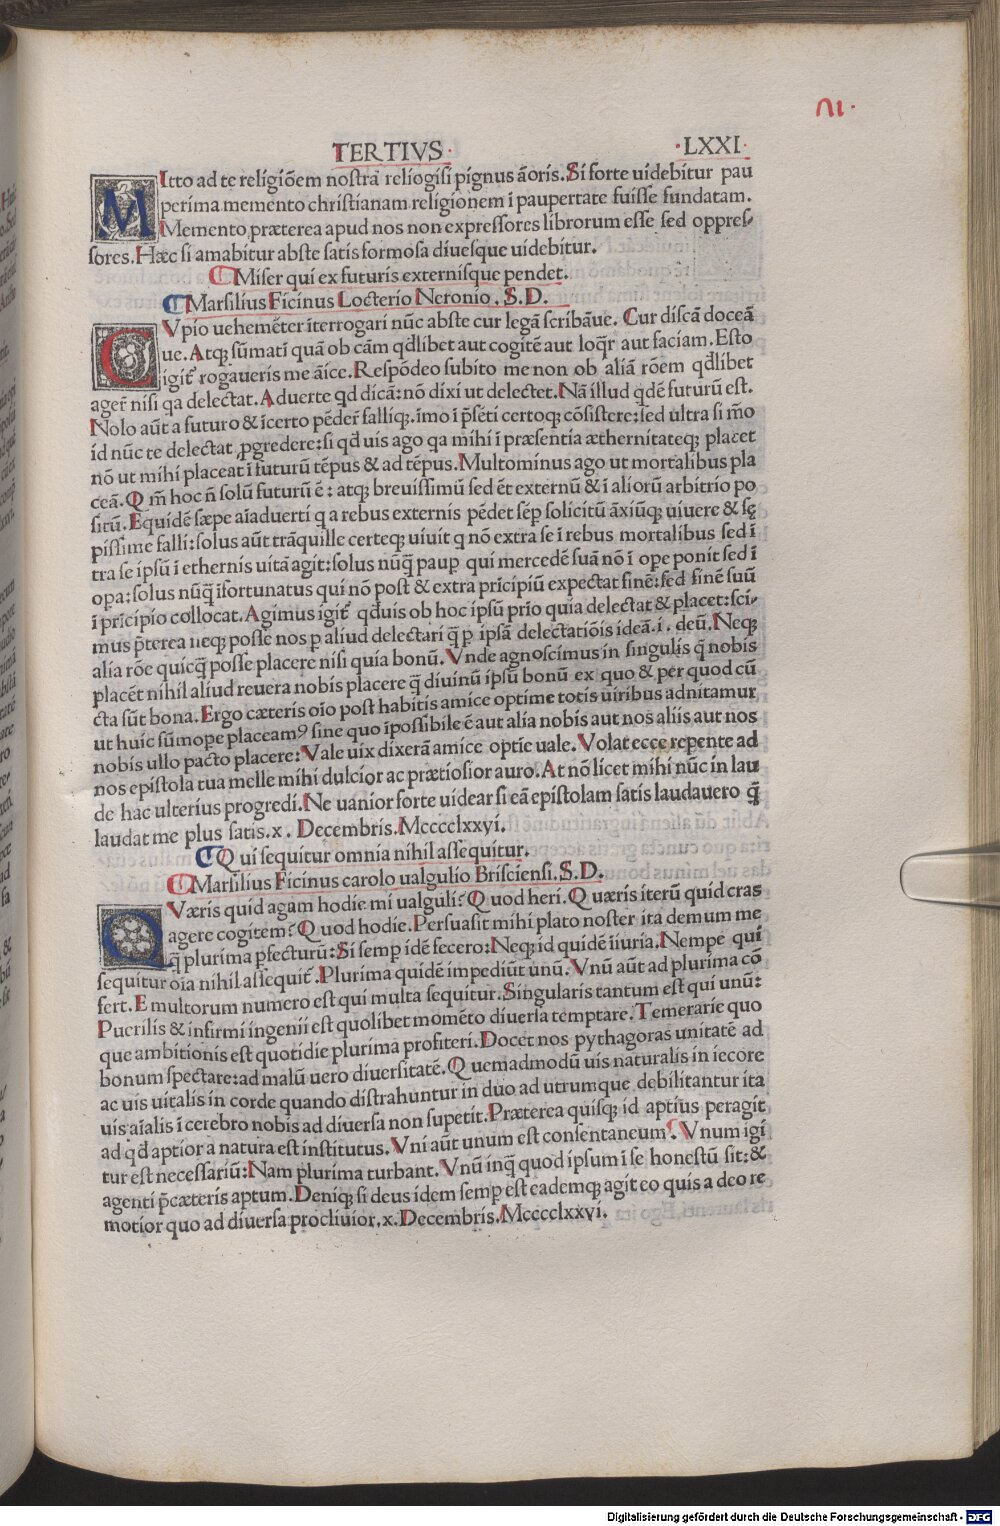 TERTIVS· ·LXXI·
MItto ad te religiõem nostrã reliogisi pignus ãoris. Si forte uidebitur pau
perima memento christianam religionem ĩ paupertate fuisse fundatam.
Memento præterea apud nos non expressores librorum esse sed oppres⸗
sores. Hæc si amabitur abste satis formosa diuesque uidebitur.
Miser qui ex futuris externisque pendet.
Marsilius Ficinus Locterio Neronio. S. D.
CVpio uehemẽter ĩterrogari nũc abste cur legã scribãue. Cur discã doceã
ue. Atq; sũmatĩ quã ob cãm qđlibet aut cogitẽ aut loq̃r aut faciam. Esto
igit᷑ rogaueris me ãice. Respõdeo subito me non ob aliã rõem qđlibet
ager̃ nisi qa delectat. Aduerte qđ dicã: nõ dixi ut delectet. Nã illud qđẽ futurũ est.
Nolo aũt a futuro & ĩcerto pẽder̃ falliq;. imo ĩ p̃sẽti certoq; cõsistere: sed ultra si m̃o
id nũc te delectat ꝓgredere: si qđ uis ago qa mihi ĩ præsentia æthernitateq; placet
nõ ut mihi placeat ĩ futurũ tẽpus & ad tẽpus. Multominus ago ut mortalibus pla
ceã. Q m̃ hoc ñ solũ futurũ ẽ: atq; breuissimũ sed ẽt externũ & ĩ aliorũ arbitrio po
sitũ. Equidẽ sæpe aĩaduerti q a rebus externis pẽdet sẽp solicitũ ãxiũq; uiuere & sę
pissime falli: solus aũt trãquille certeq; uiuit q nõ extra se ĩ rebus mortalibus sed ĩ
tra se ipsũ ĩ ethernis uitã agit: solus nũq̃ paup qui mercedẽ suã nõ ĩ ope ponit sed ĩ
opa: solus nũq̃ ĩfortunatus qui nõ post & extra prĩcipiũ expectat finẽ: sed finẽ suũ
ĩ prĩcipio collocat. Agimus igit᷑ qđuis ob hoc ipsũ prio quia delectat & placet: sci⸗
mus p̃terea neq; posse nos ꝑ aliud delectari q̃ ꝑ ipsã delectatiõis ideã. i. deũ. Neq;
alia rõe quicq̃ posse placere nisi quia bonũ. Vnde agnoscimus in singulis q̃ nobis
placẽt nihil aliud reuera nobis placere q̃ diuinũ ipsũ bonũ ex quo & per quod cũ
cta sũt bona. Ergo cæteris oĩo post habitis amice optime totis uiribus adnitamur
ut huic sũmope placeamꝰ sine quo ĩpossibile ẽ aut alia nobis aut nos aliis aut nos
nobis ullo pacto placere: Vale uix dixerã amice optĩe uale. Volat ecce repente ad
nos epistola tua melle mihi dulcior ac prætiosior auro. At nõ licet mihi nũc in lau
de hac ulterius progredi. Ne uanior forte uidear si eã epistolam satis laudauero q̃
laudat me plus satis. x. Decembris. Mcccclxxyi.
Q ui sequitur omnia nihil assequitur.
Marsilius Ficinus carolo ualgulio Brisciensi. S. D.
QVæris quid agam hodie mi ualguli? Q uod heri. Q uæris iterũ quid cras
agere cogitem? Q uod hodie. Persuasit mihi plato noster ita demum me
q̃ plurima ꝑfecturũ: Si semp idẽ fecero: Neq; id quidẽ ĩiuria. Nempe qui
sequitur oĩa nihil assequit᷑. Plurima quidẽ impediũt unũ. Vnũ aũt ad plurima cõ
fert. E multorum numero est qui multa sequitur. Singularis tantum est qui unũ:
Puerilis & infirmi ingenii est quolibet momẽto diuersa temptare. Temerarie quo
que ambitionis est quotidie plurima profiteri. Docet nos pythagoras unitatẽ ad
bonum spectare: ad malũ uero diuersitatẽ. Q uemadmodũ uis naturalis in iecore
ac uis uitalis in corde quando distrahuntur in duo ad utrumque debilitantur ita
uis aĩalis ĩ cerebro nobis ad diuersa non supetit. Præterea quisq; id aptius peragit
ad qđ aptior a natura est institutus. Vni aũt unum est consentaneum. Vnum igi
tur est necessariũ: Nam plurima turbant. Vnũ inq̃ quod ipsum ĩ se honestũ sit: &
agenti p̃cæteris aptum. Deniq; si deus idem semp est eademq; agit eo quis a deo re
motior quo ad diuersa procliuior, x. Decembris. Mcccclxxyi.
Digitalisierung gefördert durch die Deutsche Forschungsgemeinschaft - DFG